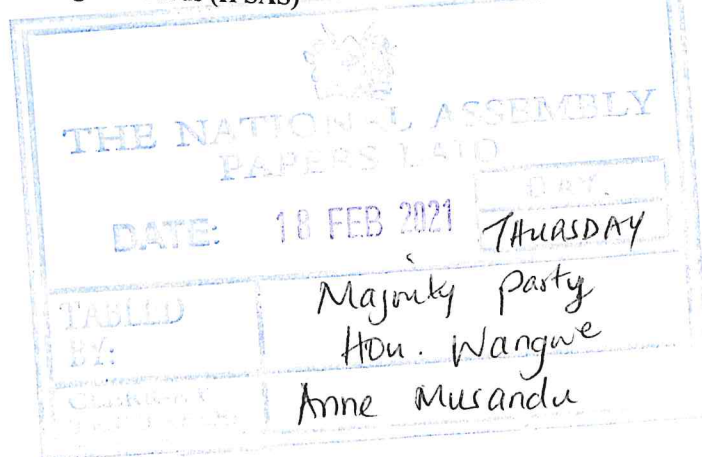 (IPSAS)
THE NATIONAL ASSEMBLY
PAPERS LAID
DATE: 18 FEB 2021
DAY.
THURSDAY
TABLED
BY:
Majority Party
Hon. Wangwe
Anne Musandu